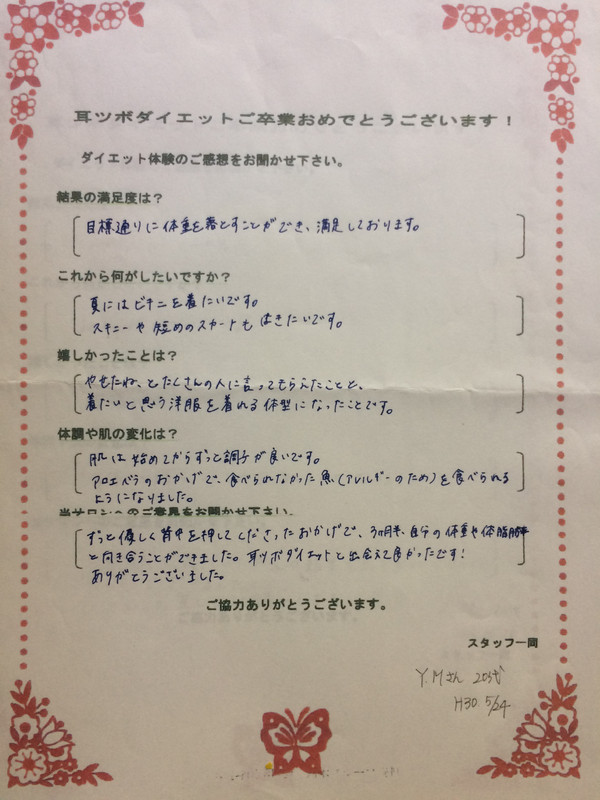 耳ツボダイエットご卒業おめでとうございます！
ダイエット体験のご感想をお聞かせ下さい。
結果の満足度は？
目標通りに体重を落とすことができ、満足しております。
これから何がしたいですか？
夏にはビキニを着たいです。
スキニーや短めのスカートもはきたいです。
嬉しかったことは？
やせたね、とたくさんの人に言ってもらえたことと、
着たいと思う洋服を着れる体型になったことです。
体調や肌の変化は？
肌は始めてからずっと調子が良いです。
アロエベラのおかげで、食べられなかった魚(アレルギーのため)を食べられる
ようになりました。
当サロンへのご意見をお聞かせ下さい。
ずっと優しく背中を押してくださったおかげで、3ヶ月半、自分の体重や体脂肪率
と向き合うことができました。耳ツボダイエットと出会えて良かったです！
ありがとうございました。
ご協力ありがとうございます。
スタッフ一同
Y.Mさん 20代
H30. 5/24